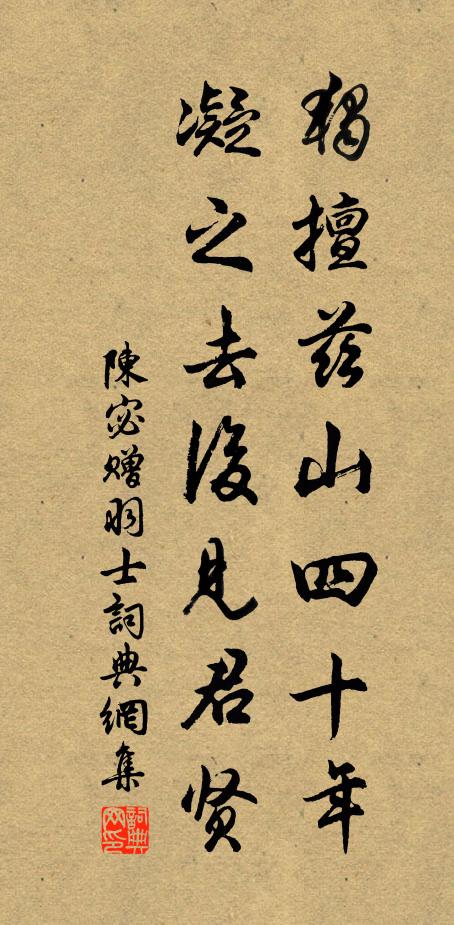 獨擅茲山四十年
凝之去後見君賢
陳宓贈羽士詞典網集
詞典網印